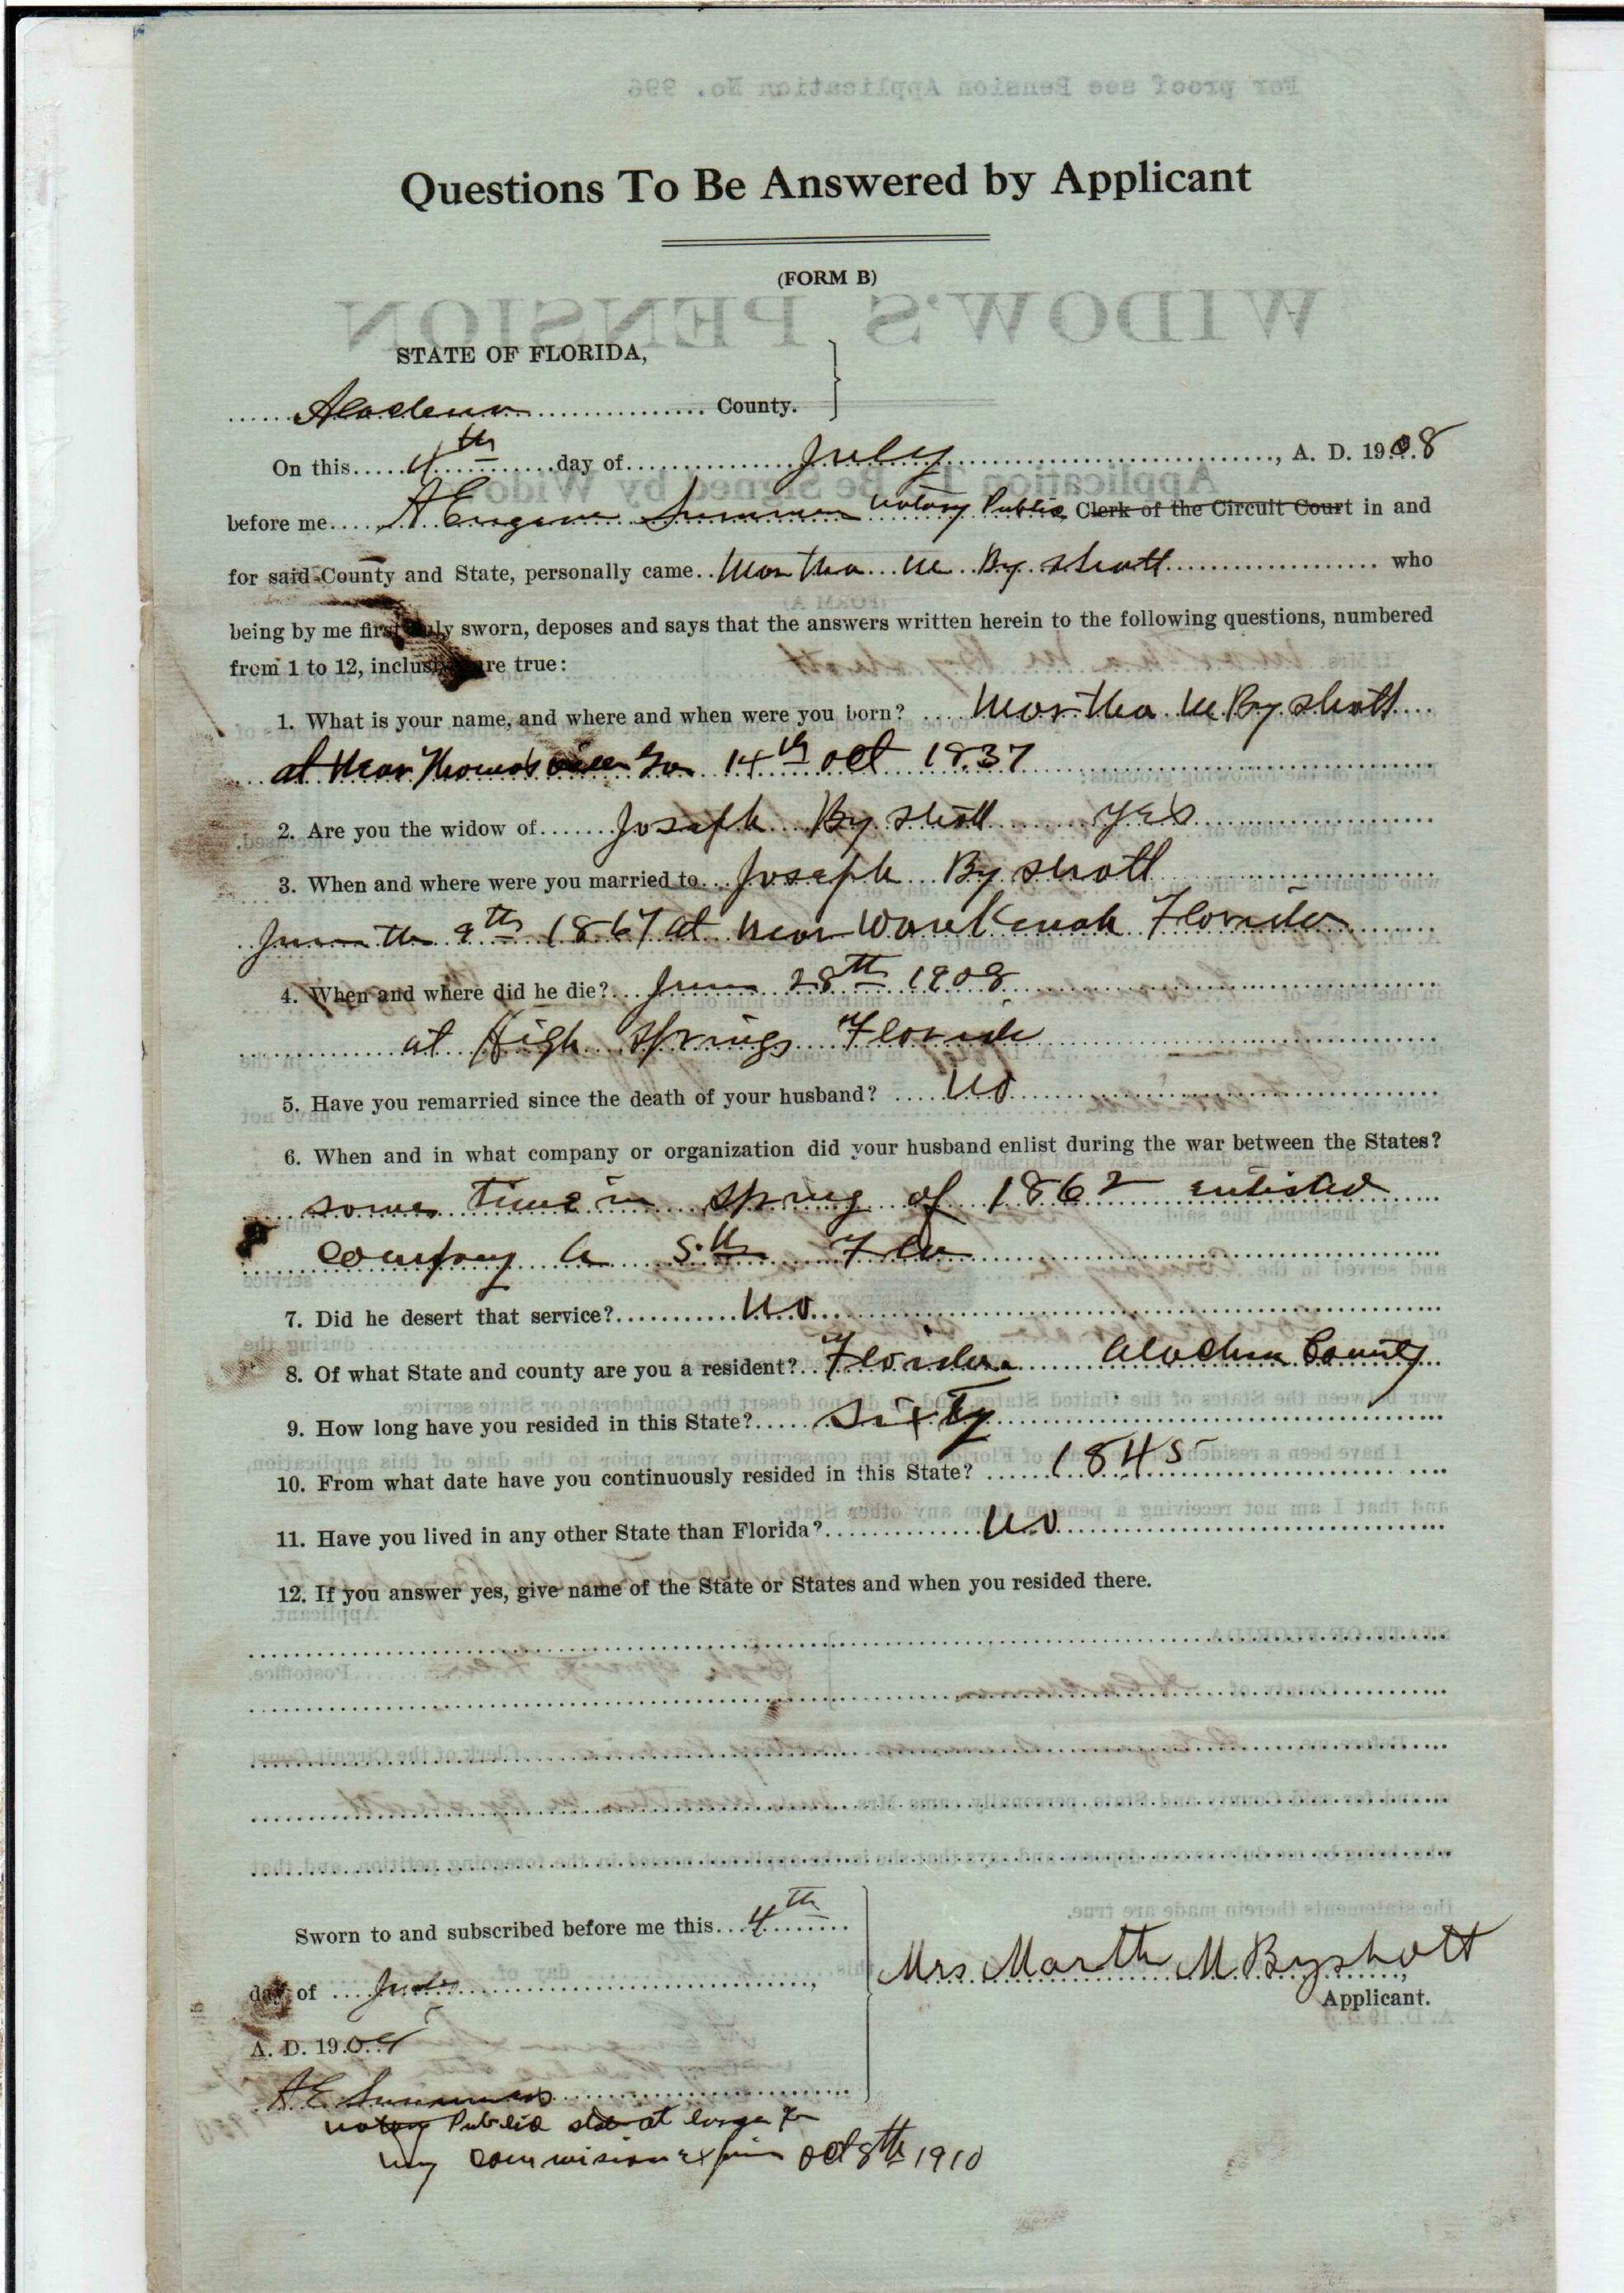 For proof see Pension Application No. 996
Questions To Be Answered by Applicant
(FORM B)
WIDOW'S PENSION
STATE OF FLORIDA,
Alachua County.
On this 4th day of July, A. D. 1908
Application To Be Signed by Widow
before me A Eugene Summers notary Public Clerk of the Circuit Court in and
for said County and State, personally came Martha M Byshott who
being by me first duly sworn, deposes and says that the answers written herein to the following questions, numbered
from 1 to 12, inclusive are true:
1. What is your name, and where and when were you born? Martha M Byshott
at Near Thomasville Ga 14th oct 1837
2. Are you the widow of Joseph Byshott yes
3. When and where were you married to Joseph Byshott
June the 9th 1867 at near Florida
4. When and where did he die? June 28th 1908
at High Springs Florida
5. Have you remarried since the death of your husband? No
6. When and in what company or organization did your husband enlist during the war between the States?
some time in spring of 1862 enlisted
company 5th Fla
7. Did he desert that service? No
8. Of what State and county are you a resident? Florida Alachua County
9. How long have you resided in this State? sixty
10. From what date have you continuously resided in this State? 1845
11. Have you lived in any other State than Florida? No
12. If you answer yes, give name of the State or States and when you resided there.
Sworn to and subscribed before me this 4th
day of July,
A. D. 1908
Mrs Marth M Byshott
Applicant.
A E Summers
notary Public state at large
my commision expires oct 8th 1910